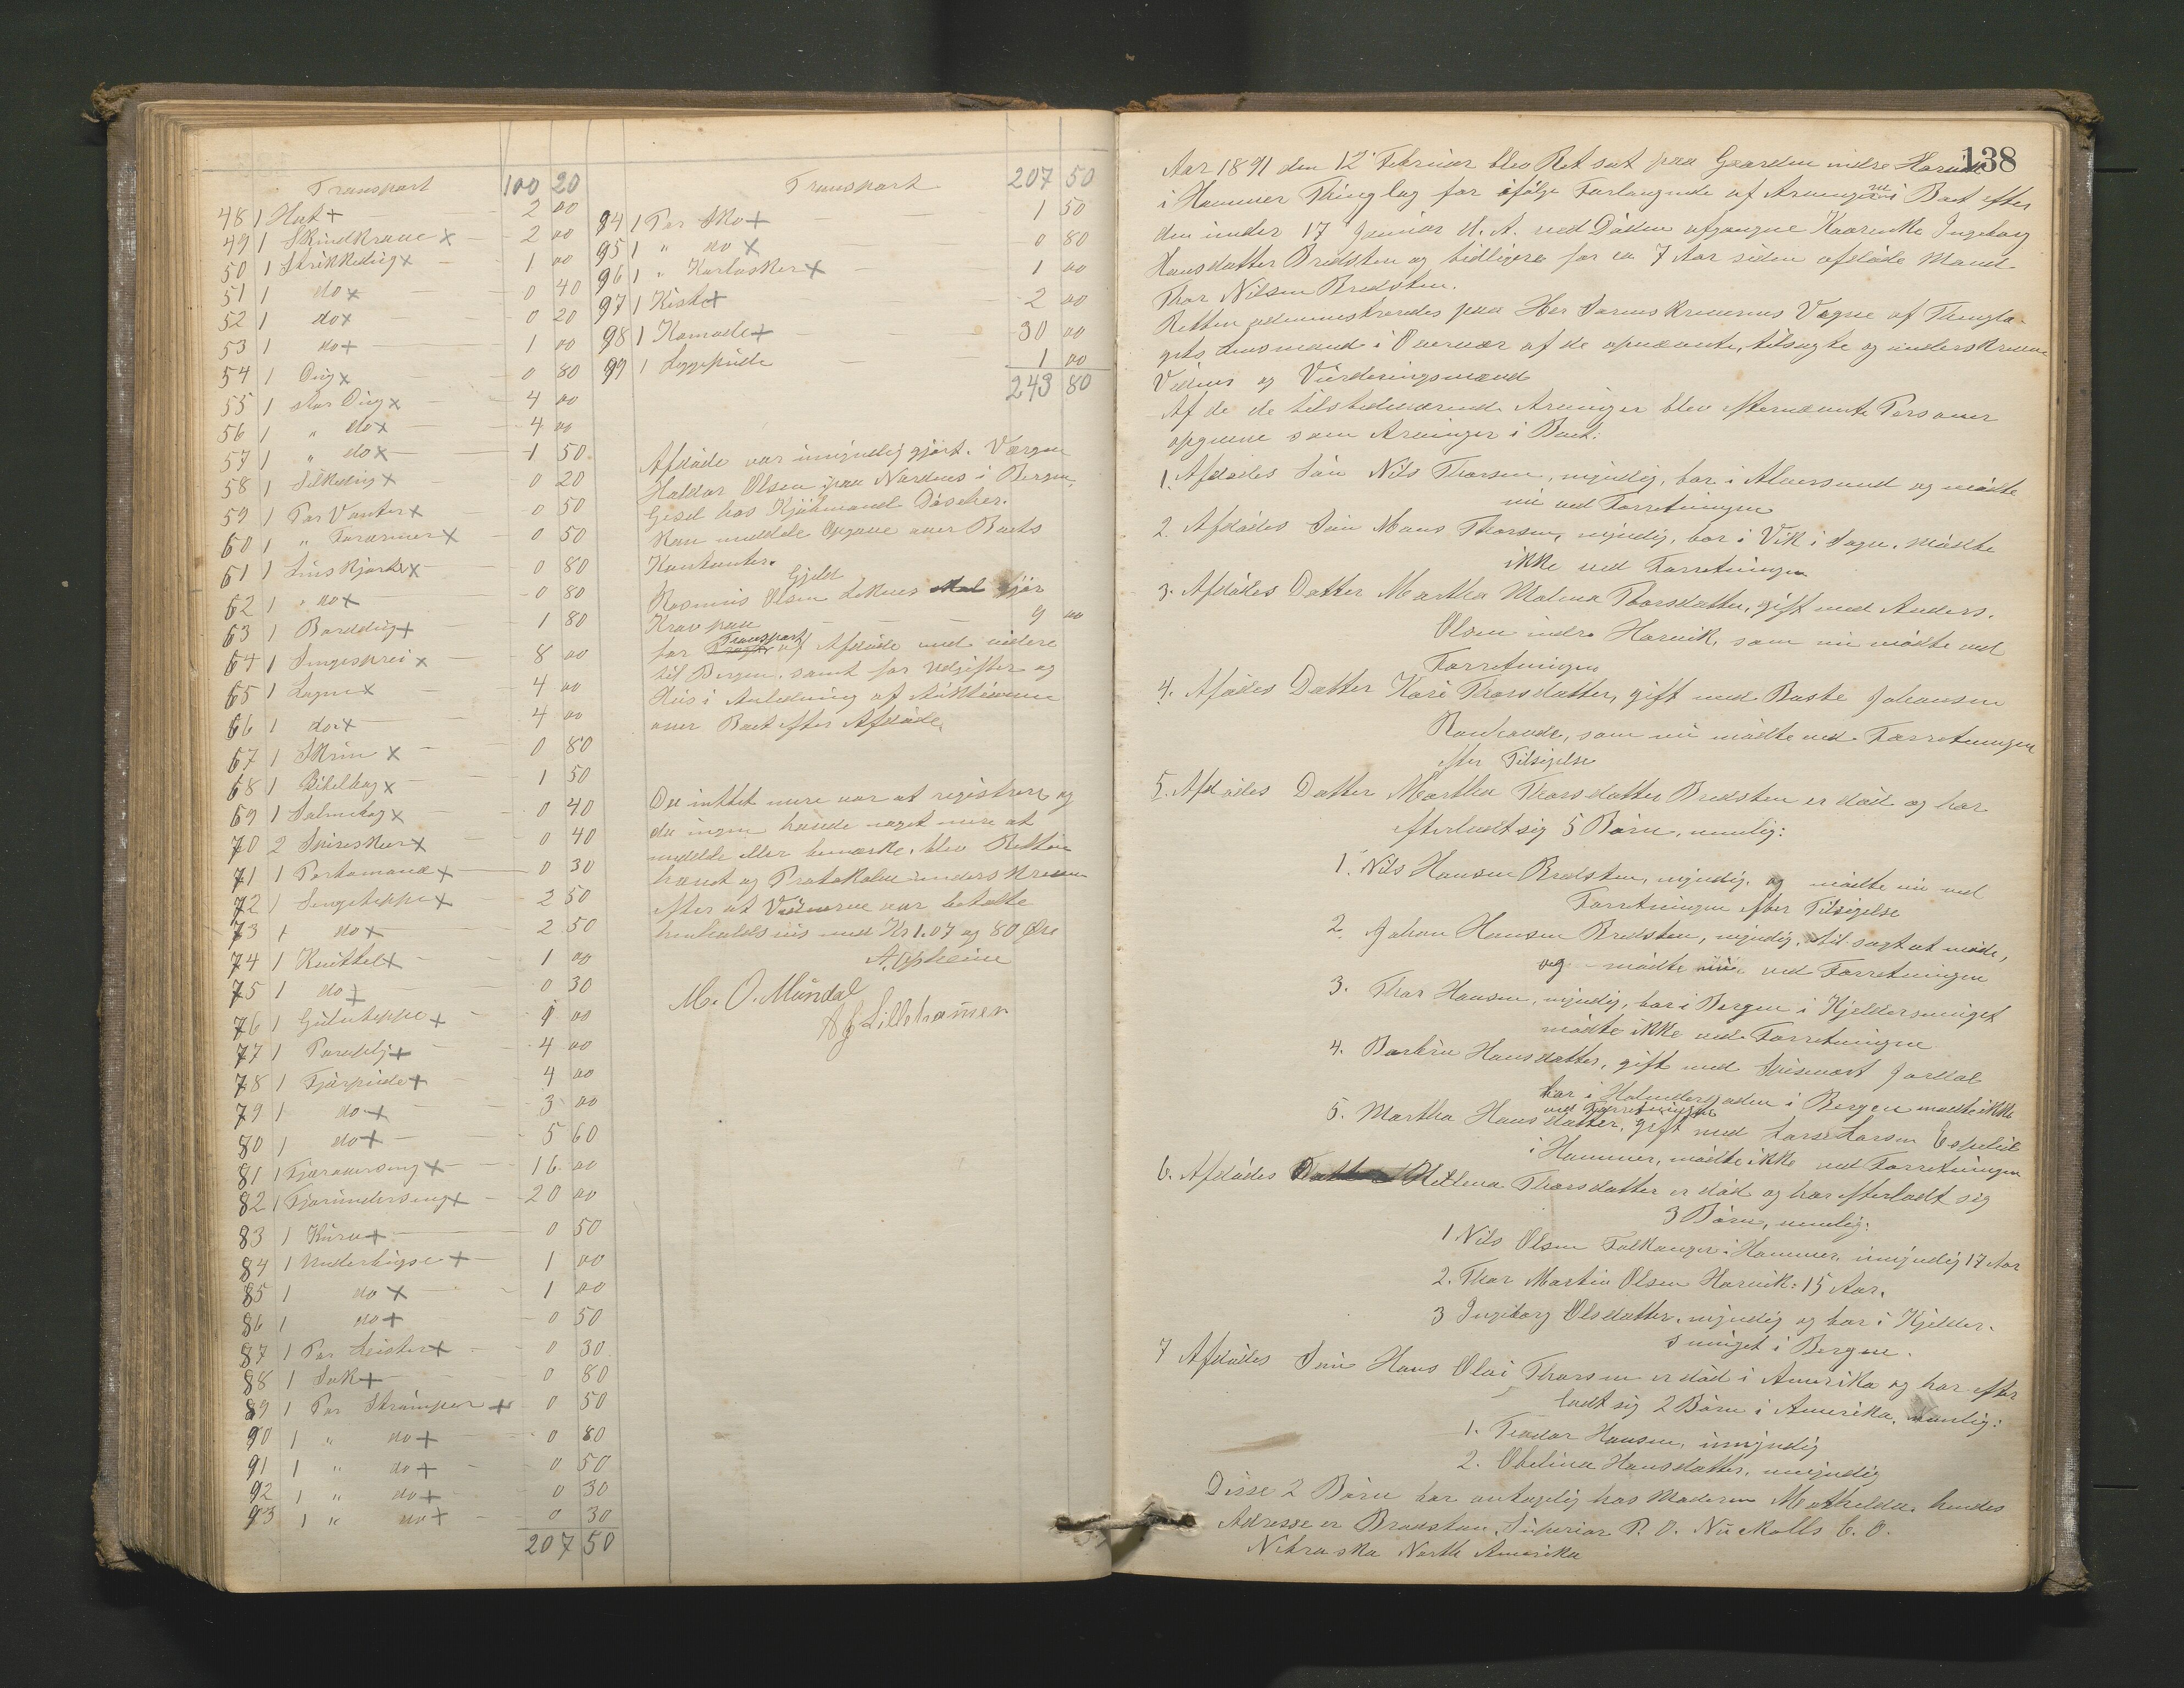 Transport 100 20
48 1 Hat + 2 00
49 1 Skindkrave x 2 00
50 1 Strikkedug x 1 00
51 1 do x 0 40
52 1 do x 0 20
53 1 do + 1 00
54 1 Dug x 0 80
55 1 stor Dug x 4 00
56 1 " do x 4 00
57 1 " do x 1 50
58 1 Silkedug x 0 20
59 1 Par Vanter x 0 50
60 1 " Forermer x 0 50
61 1 Linskjorte x 0 80
62 1 " do x 0 80
63 1 Borddug + 1 80
64 1 Sengesprei x 8 00
65 1 Lagen x 4 00
66 1 do x 4 00
67 1 Skrin x 0 80
68 1 Bibelbog x 1 50
69 1 Salmebog x 0 40
70 2 Spiseskeer x 0 40
71 1 Portemonæ x 0 30
72 1 Sengeteppe x 2 50
73 1 do x 2 50
74 1 Knittel x 1 00
75 1 do + 0 30
76 1 Gulvteppe + 1 00
77 1 Paraply + 4 00
78 1 Fjærpude + 4 00
79 1 do + 3 00
80 1 do + 5 60
81 1 Fjæroverseng x 16 00
82 1 Fjærunderseng x 20 00
83 1 Kurv + 0 50
84 1 Underbugse + 1 00
85 1 do x 1 00
86 1 do + 0 50
87 1 Par Leister + 0 30
88 1 Sæk + 0 80
89 1 Par Strømper + 0 50
90 1 " do + 0 80
91 1 " do + 0 50
92 1 " do + 0 30
93 1 " do + 0 30
207 50
Transport 207 50
94 1 Par Sko + 1 50
95 1 " do x 0 80
96 1 " Karlasker x 1 00
97 1 Kiste + 2 00
98 1 Komode + 30 00
99 1 Leggepude 1 00
243 80
Afdøde var umyndig gjort. Værgen
Haldor Olsen paa Nordnes i Bergen,
Gesel hos Kjøbmand Døscher.
Kan meddele Opgave over Boets
Kontanter.
Gjeld
Rasmus Olsen Leknes gjør
Krav paa 9 00
for Transport af Afdøde med videre
til Bergen, samt for Udgifter og
Hus i Anledning af Auktionen
over Boet efter Afdøde.
Da intet mere var at registrere og
da ingen havde noget mere at
meddele eller bemærke, blev Retten
hævet og Protokolen underskreven
efter at Vidnerne var betalte
henholdsvis med Kr 1.07 og 80 Øre
A. Opheim
M. O. Mundal
A J Lillehammer
138
Aar 1891 den 12' Februar blev Ret sat paa Gaarden indre Harvik
i Hammer Thinglag for ifølge Forlangende af Arvingerne i Boet efter
den under 17 Januar d. A. ved Døden afgangne Kaarenke Ingeborg
Hansdatter Bredsten og tidligere for ca 7 Aar siden afdøde Mand
Thor Nilsen Bredsten.
Retten administreredes paa Hr Sorenskriverens Vegne af Thingla-
gets Lensmand i Overvær af de opnævnte, tilsagte og underskrevne
Vidner og Vurderingsmænd
Af de de tilstedeværende Arvinger blev efternævnte Personer
opgivne som Arvinger i Boet.
1. Afdødes Søn Nils Thorsen, myndig, bor i Alversund og mødte
nu ved Forretningen
2. Afdødes Søn Mons Thorsen, myndig, bor i Vik i Sogn, mødte
ikke ved Forretningen
3. Afdødes Datter Martha Malena Thorsdatter, gift med Anders
Olsen indre Harvik, som nu mødte ved
Forretningen
4. Afdødes Datter Kari Thorsdatter, gift med Baste Johansen
Ronhovde, som nu mødte ved Forretningen
efter Tilsigelse
5. Afdødes Datter Martha Thorsdatter Bredsten er død og har
efterladt sig 5 Børn, nemlig:
1. Nils Hansen Bredsten, myndig, og mødte nu ved
Forretningen efter Tilsigelse
2. Johan Hansen Bredsten, myndig, tilsagt at møde,
og mødte nu ved Forretningen
3. Thor Hansen, myndig, bor i Bergen i Kjeldersmuget
mødte ikke ved Forretningen
4. Barbru Hansdatter, gift med Spisevært Jordal
bor i Holendergaden i Bergen mødte ikke
ved Forretningen
5. Martha Hansdatter, gift med Lars Larsen Espelid
i Hammer, mødte ikke ved Forretningen
6. Afdødes Datter Hellena Thorsdatter er død og har efterladt sig
3 Børn, nemlig:
1 Nils Olsen Falkanger i Hammer, umyndig 17 Aar
2. Thor Martin Olsen Harvik: 15 Aar.
3 Ingeborg Olsdatter, myndig og bor i Kjelder-
smuget i Bergen.
7 Afdødes Søn Hans Olai Thorsen er død i Amerika og har efter
ladt sig 2 Børn i Amerika, nemlig:
1. Teodor Hansen, umyndig
2. Obelina Hansdatter, umyndig
Disse 2 Børn bor antagelig hos Moderen Mathelda, hendes
Adresse er Bradstun, Superior P. O. Nuckolls C. O.
Nebraska North Amerika